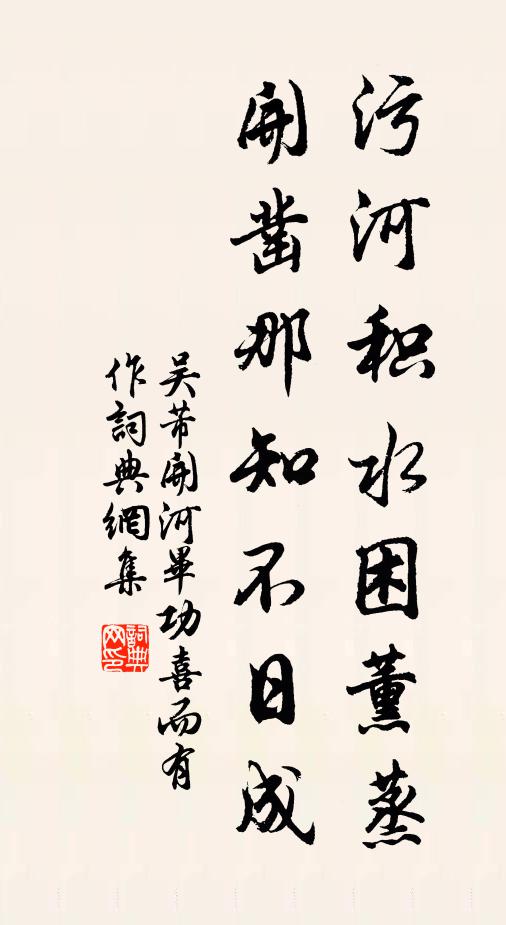 污河积水困薰蒸
開凿那知不日成
吴芾開河畢功喜而有
作詞典網集
詞典網印